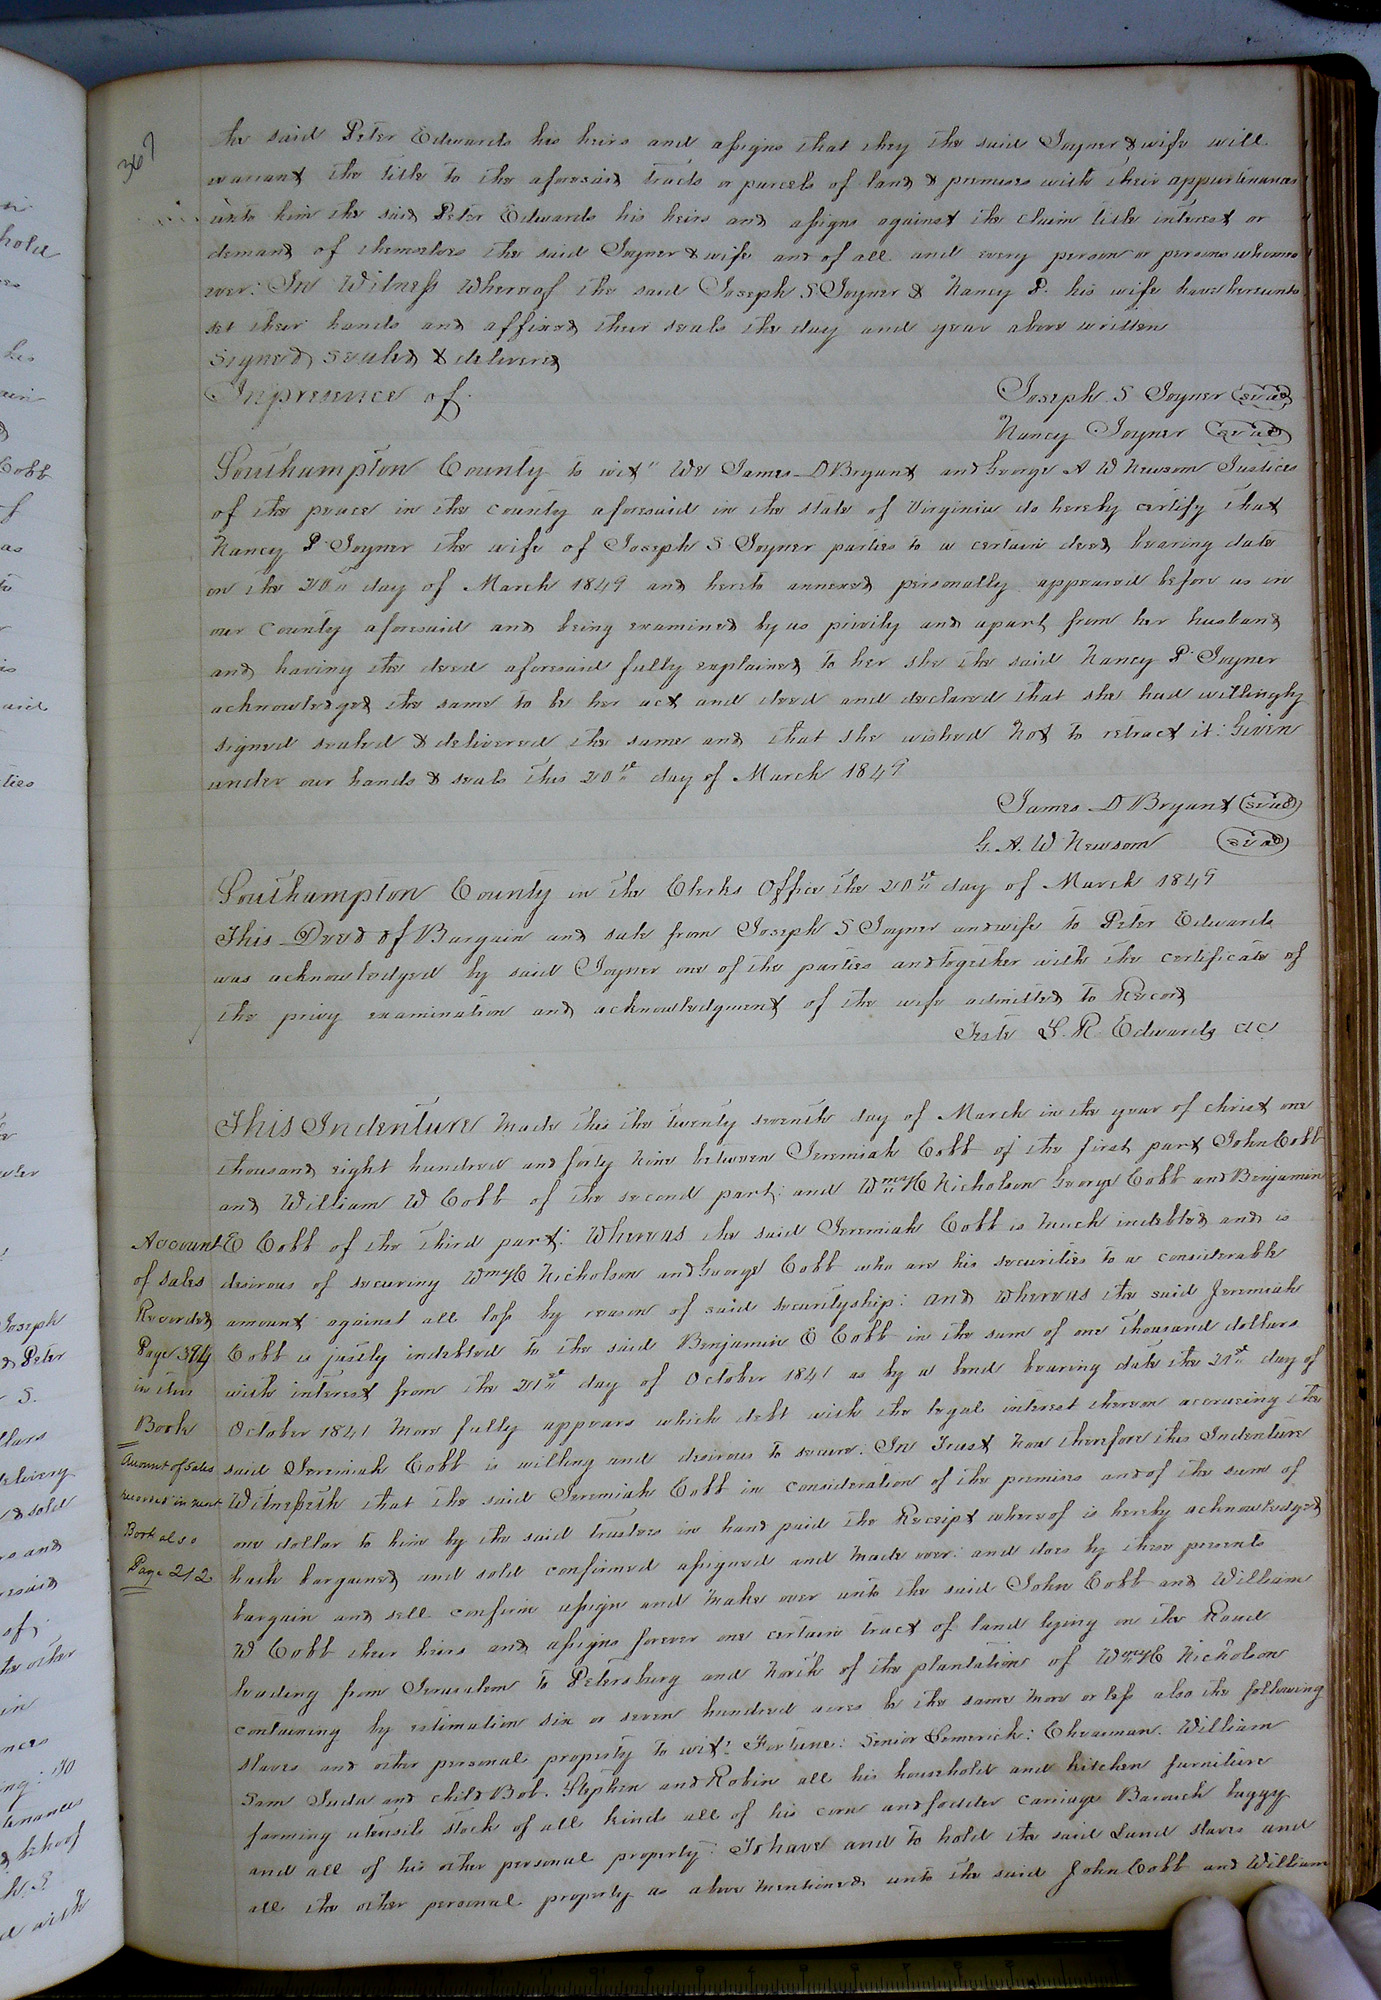 367
the said Peter Edwards his heirs and assigns that they the said Joyner & wife will
warrant the title to the aforesaid tracts or parcels of land & premises with their appurtinances
unto him the said Peter Edwards his heirs and assigns against the claim title interest or
demand of themselves the said Joyner & wife and of all and every person or persons whomso
ever: In Witness Whereof the said Joseph S Joyner & Nancy P. his wife have hereunto
set their hands and affixed their seals the day and year above written
Signed sealed & delivered
In presence of
Joseph S Joyner (seal)
Nancy Joyner (seal)
Southampton County to wit" We James D Bryant and George A W Newsom Justices
of the peace in the county aforesaid in the state of Virginia do hereby certify that
Nancy P Joyner the wife of Joseph S Joyner parties to a certain deed bearing date
on the 20th day of March 1849 and hereto annexed personally appeared before us in
our County aforesaid and being examined by us privily and apart from her husband
and having the deed aforesaid fully explained to her she the said Nancy P Joyner
acknowledged the same to be her act and deed and declared that she had willingly
signed sealed & delivered the same and that she wished Not to retract it: Given
under our hands & seals this 20th day of March 1849
James D Bryant (seal)
G. A. W Newsom (seal)
Southampton County in the Clerks Office the day of March 1849
This Deed of Bargain and sale from Joseph S Joyner and wife to Peter Edwards
was acknowledged by said Joyner one of the parties and together with the certificate of
the privy examination and acknowledgment of the wife admitted to Record
Teste L. R. Edwards CSC
This Indenture Made this the twenty seventh day of March in the year of christ one
thousand eight hundred and forty Nine between Jeremiah Cobb of the first part John Cobb
and William W Cobb of the second part: and Wm H Nicholson George Cobb and Benjamin
E Cobb of the third part: Whereas the said Jeremiah Cobb is Much indebted and is
desirous of securing Wm H Nicholson and George Cobb who are his securities to a considerable
amount against all loss by reason of said securityship: and whereas the said Jeremiah
Cobb is justly indebted to the said Benjamin E Cobb in the sum of one thousand dollars
with interest from the 21st day of October 1841 as by a bond bearing date the 21st day of
October 1841 More fully appears which debt with the legal interest thereon accrueing the
said Jeremiah Cobb is willing and desirous to secure. In Trust Now therefore this Indenture
Witnesseth that the said Jeremiah Cobb in consideration of the premises and of the sum of
one dollar to him by the said trustees in hand paid the Receipt whereof is hereby acknowledged
hath bargained and sold confirmed assigned and Made over: and does by these presents
bargain and sell confirm assign and Make over unto the said John Cobb and William
W Cobb their heirs and assigns forever one certain tract of land lying on the Road
leading from Jerusalem to Petersburg and North of the plantation of Wm H Nicholson
containing by estimation six or seven hundred acres be the same More or less also the following
slaves and other personal property to wit: Fortune: Senior Limerick: Cheasman. William
Sam Juda and child Bob. Stephen and Robin all his household and kitchen furniture
farming utensils stock of all kinds all of his corn and fodder carriage Barouch buggy
and all of his other personal property: To have and to hold the said Land slaves and
all the other personal property as above Mentioned unto the said John Cobb and William
Account
of sales
Recorded
Page 394
in this
Book
Amount of Sales
recorded in next
Book also
Page 212